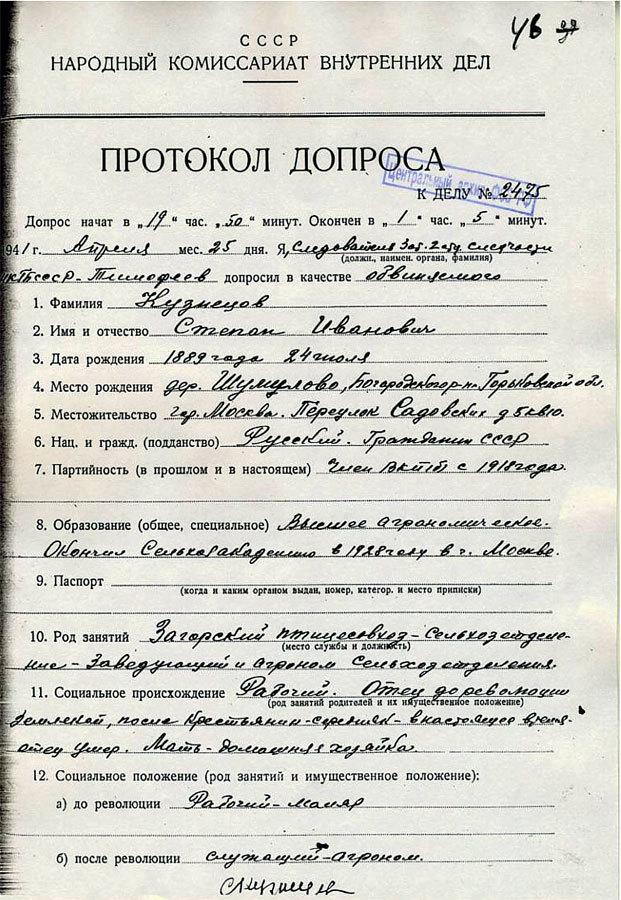 46
СССР
НАРОДНЫЙ КОМИССАРИАТ ВНУТРЕННИХ ДЕЛ
ПРОТОКОЛ ДОПРОСА
Центральный архив ФСБ РФ
К ДЕЛУ № 2475
Допрос начат в „19“ час. „50“ минут. Окончен в „1“ час. „5“ минут.
941 г. Апреля мес. 25 дня. Я, Следователь следчасти
(должн., наимен. органа, фамилия)
СССР - Тимофеев допросил в качестве обвиняемого
1. Фамилия Кузнецов
2. Имя и отчество Степан Иванович
3. Дата рождения 1889 года 24 июля
4. Место рождения дер. Шумулово, Богородского р-на Горьковской обл.
5. Местожительство гор. Москва. Переулок Садовских д 5 кв 10.
6. Нац. и гражд. (подданство) Русский. Гражданин СССР
7. Партийность (в прошлом и в настоящем) Член ВКПб с 1918 года.
8. Образование (общее, специальное) Высшее агрономическое.
Окончил Сельхозакадемию в 1928 году в г. Москве.
9. Паспорт
(когда и каким органом выдан, номер, категор. и место приписки)
10. Род занятий Загорский птицесовхоз - Сельхозотделе-
(место службы и должность)
ние - Заведующий и агроном сельхозотделения.
11. Социальное происхождение Рабочий. Отец до революции
(род занятий родителей и их имущественное положение)
после крестьянин-середняк - в настоящее время
отец умер. Мать - домашняя хозяйка.
12. Социальное положение (род занятий и имущественное положение):
а) до революции Рабочий - маляр
б) после революции служащий - агроном.